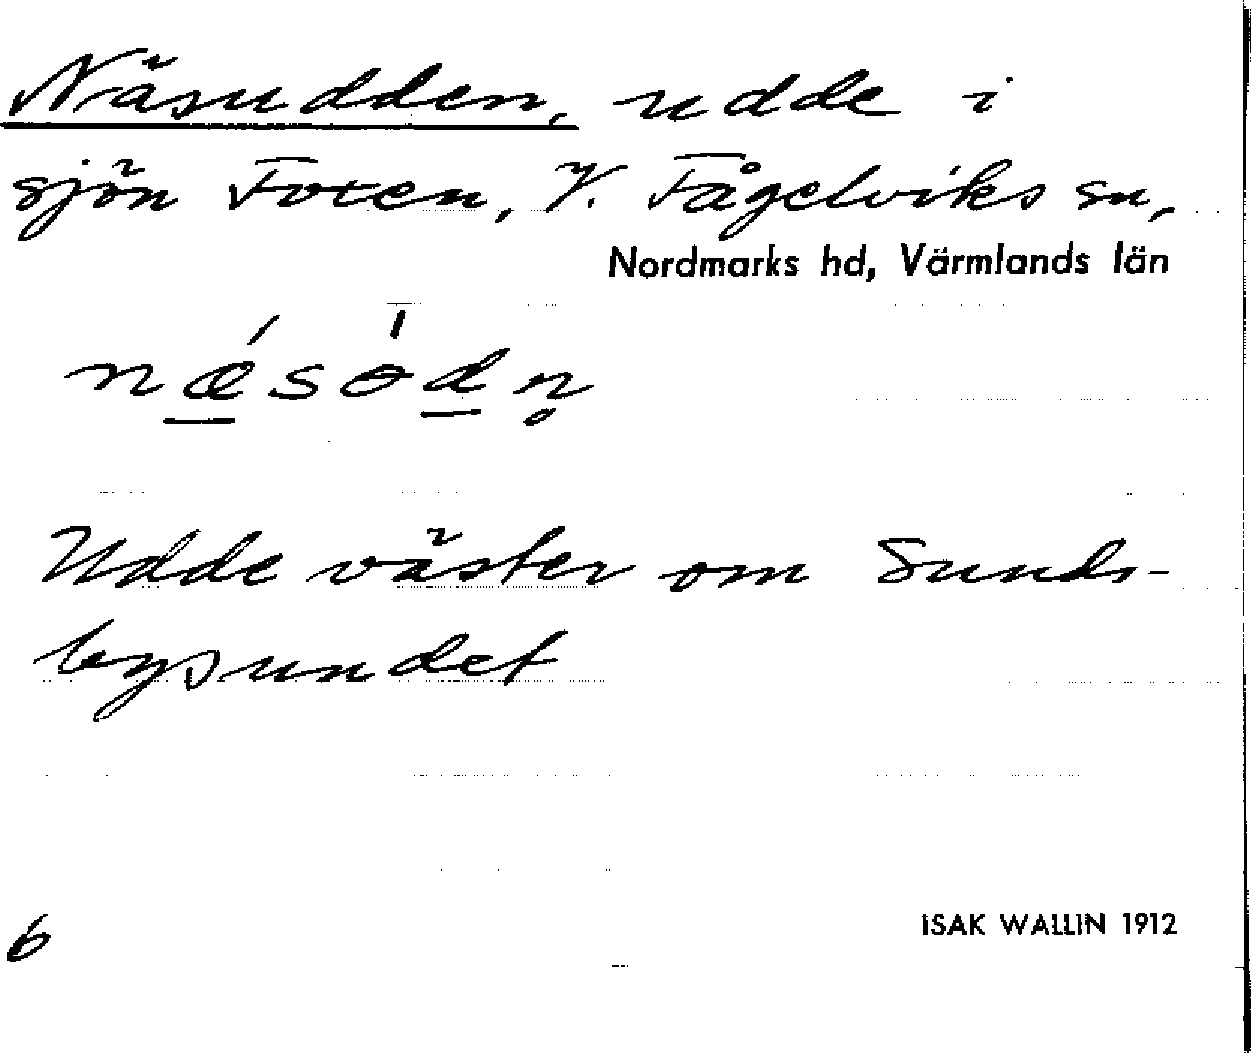 Näsudden, udde i
sjön Foxen, V. Fågelviks sn,
Nordmarks hd, Värmlands län
nǽ̲sɵ̍d̲n̥
Udde väster om Sunds-
bysundet
6
ISAK WALLIN 1912